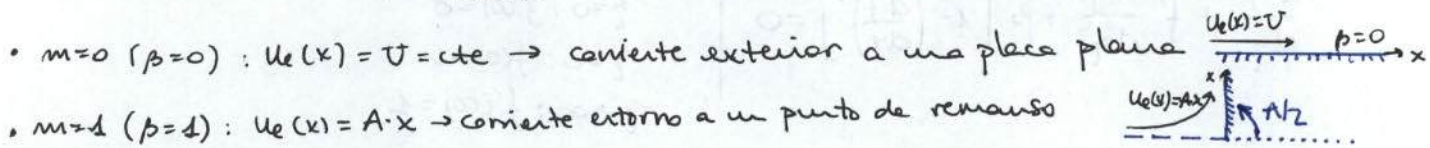 • m=0 (β=0) : Ue(x) = U = cte → corriente exterior a una placa plana
Ue(x)=U
β=0
x
• m=1 (β=1) : Ue(x) = A·x → corriente entorno a un punto de remanso
x
Ue(x)=Ax
π/2